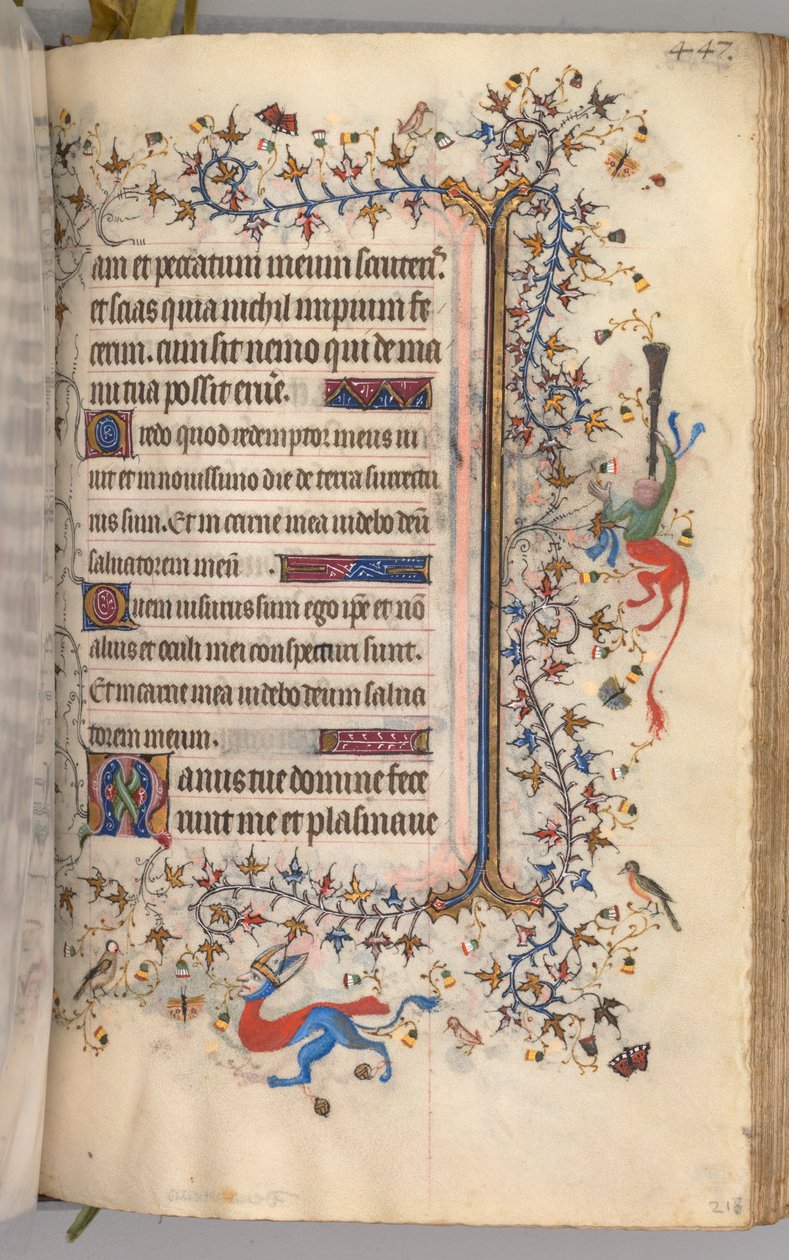 447.
am et peccatum meum scruteris.
et scias quia nichil impium fe
cerim. cum sit nemo qui de ma
nu tua possit eruẽ.
Credo quod redemptor meus vi
uit et in nouissimo die de terra surrectu
rus sum. Et in carne mea videbo deũ
saluatorem meũ
Quem visurus sum ego ip̃e et nõ
alius et oculi mei conspecturi sunt.
Et in carne mea videbo deum salua
torem meum.
Manus tue domine fece
runt me et plasmaue
218